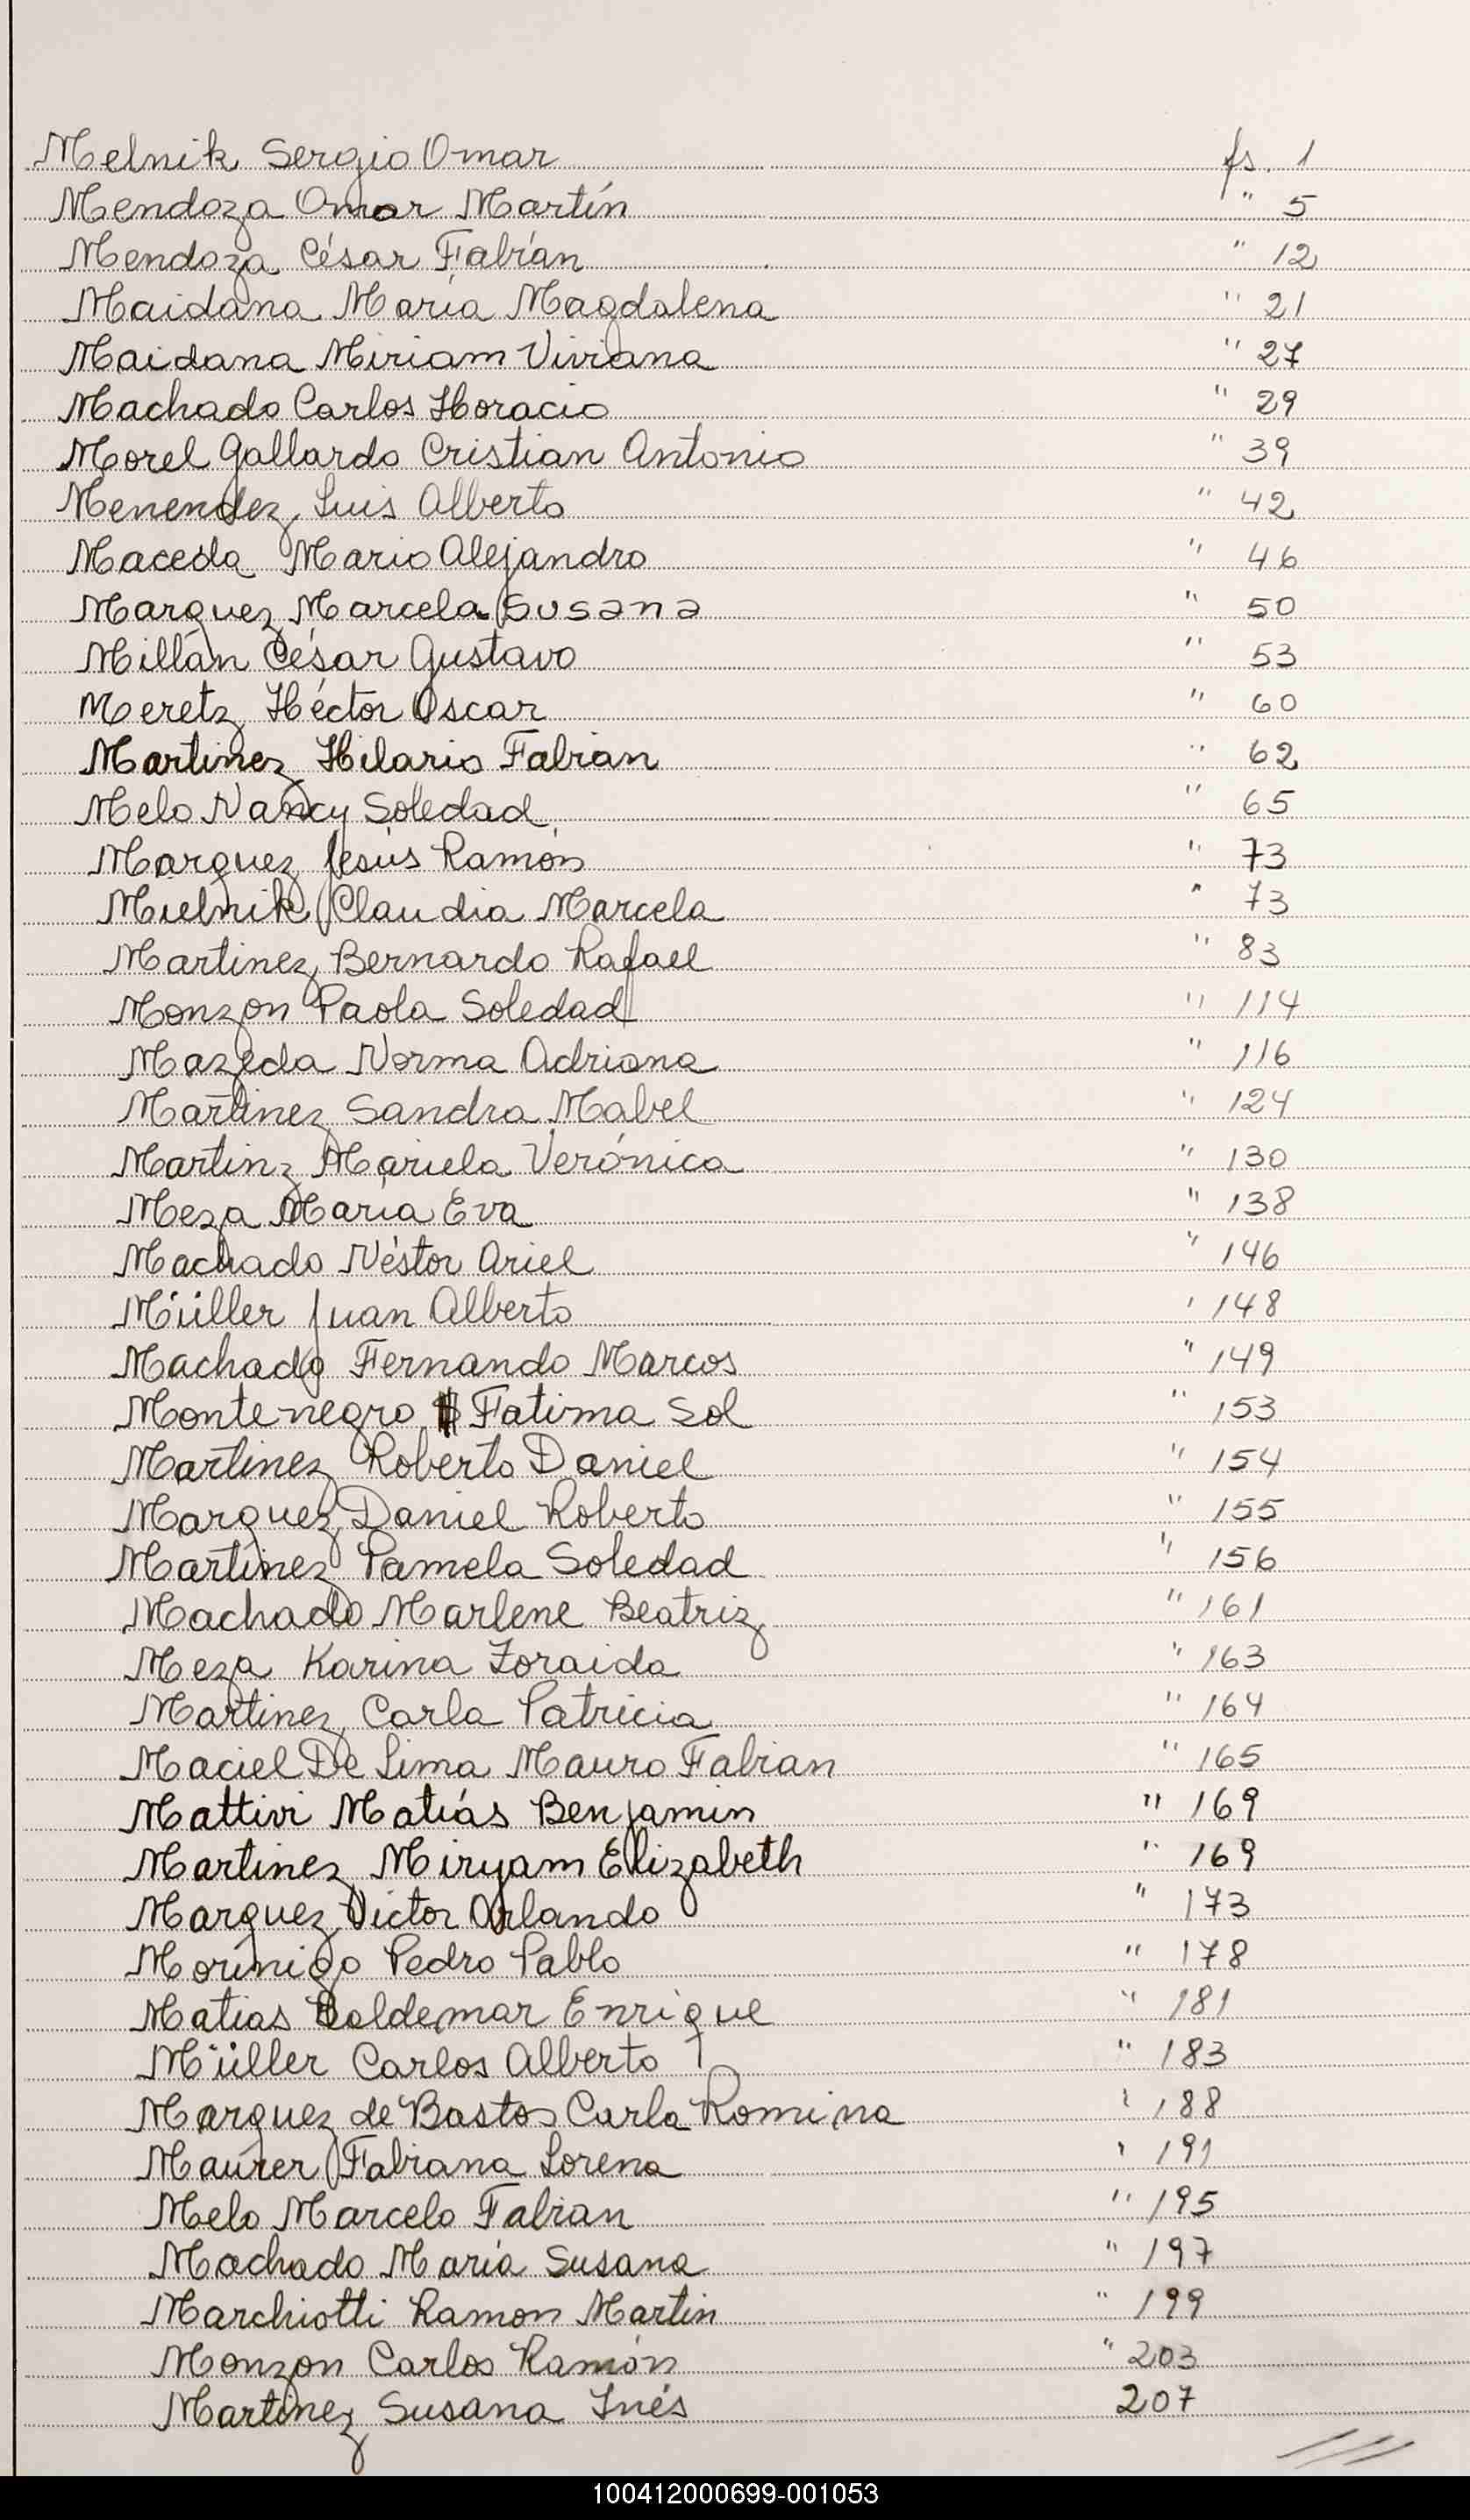 Melnik Sergio Omar fs. 1
Mendoza Omar Martín " 5
Mendoza César Fabián " 12
Maidana María Magdalena " 21
Maidana Miriam Viviana " 27
Machado Carlos Horacio " 29
Morel Gallardo Cristian Antonio " 39
Menendez Luis Alberto " 42
Maceda Mario Alejandro " 46
Marquez Marcela Susana " 50
Millán César Gustavo " 53
Meretz Héctor Oscar " 60
Martinez Hilario Fabian " 62
Melo Nancy Soledad " 65
Marquez Jesús Ramón " 73
Mielnik Claudia Marcela " 73
Martinez Bernardo Rafael " 83
Monzon Paola Soledad " 114
Mazeda Norma Adriana " 116
Martinez Sandra Mabel " 124
Martinz Mariela Verónica " 130
Meza María Eva " 138
Machado Néstor Ariel " 146
Müller Juan Alberto " 148
Machado Fernando Marcos " 149
Montenegro Fatima Sol " 153
Martinez Roberto Daniel " 154
Marquez Daniel Roberto " 155
Martinez Pamela Soledad " 156
Machado Marlene Beatriz " 161
Meza Karina Zoraida " 163
Martinez Carla Patricia " 164
Maciel De Lima Mauro Fabian " 165
Mattivi Matiás Benjamin " 169
Martinez Miryam Elizabeth " 169
Marquez Victor Orlando " 173
Morinigo Pedro Pablo " 178
Matias Baldemar Enrique " 181
Müller Carlos Alberto " 183
Marquez de Bastos Carla Romina " 188
Maurer Fabiana Lorena " 191
Melo Marcelo Fabian " 195
Machado María Susana " 197
Marchiotti Ramon Martin " 199
Monzon Carlos Ramón " 203
Martinez Susana Inés 207
100412000699-001053